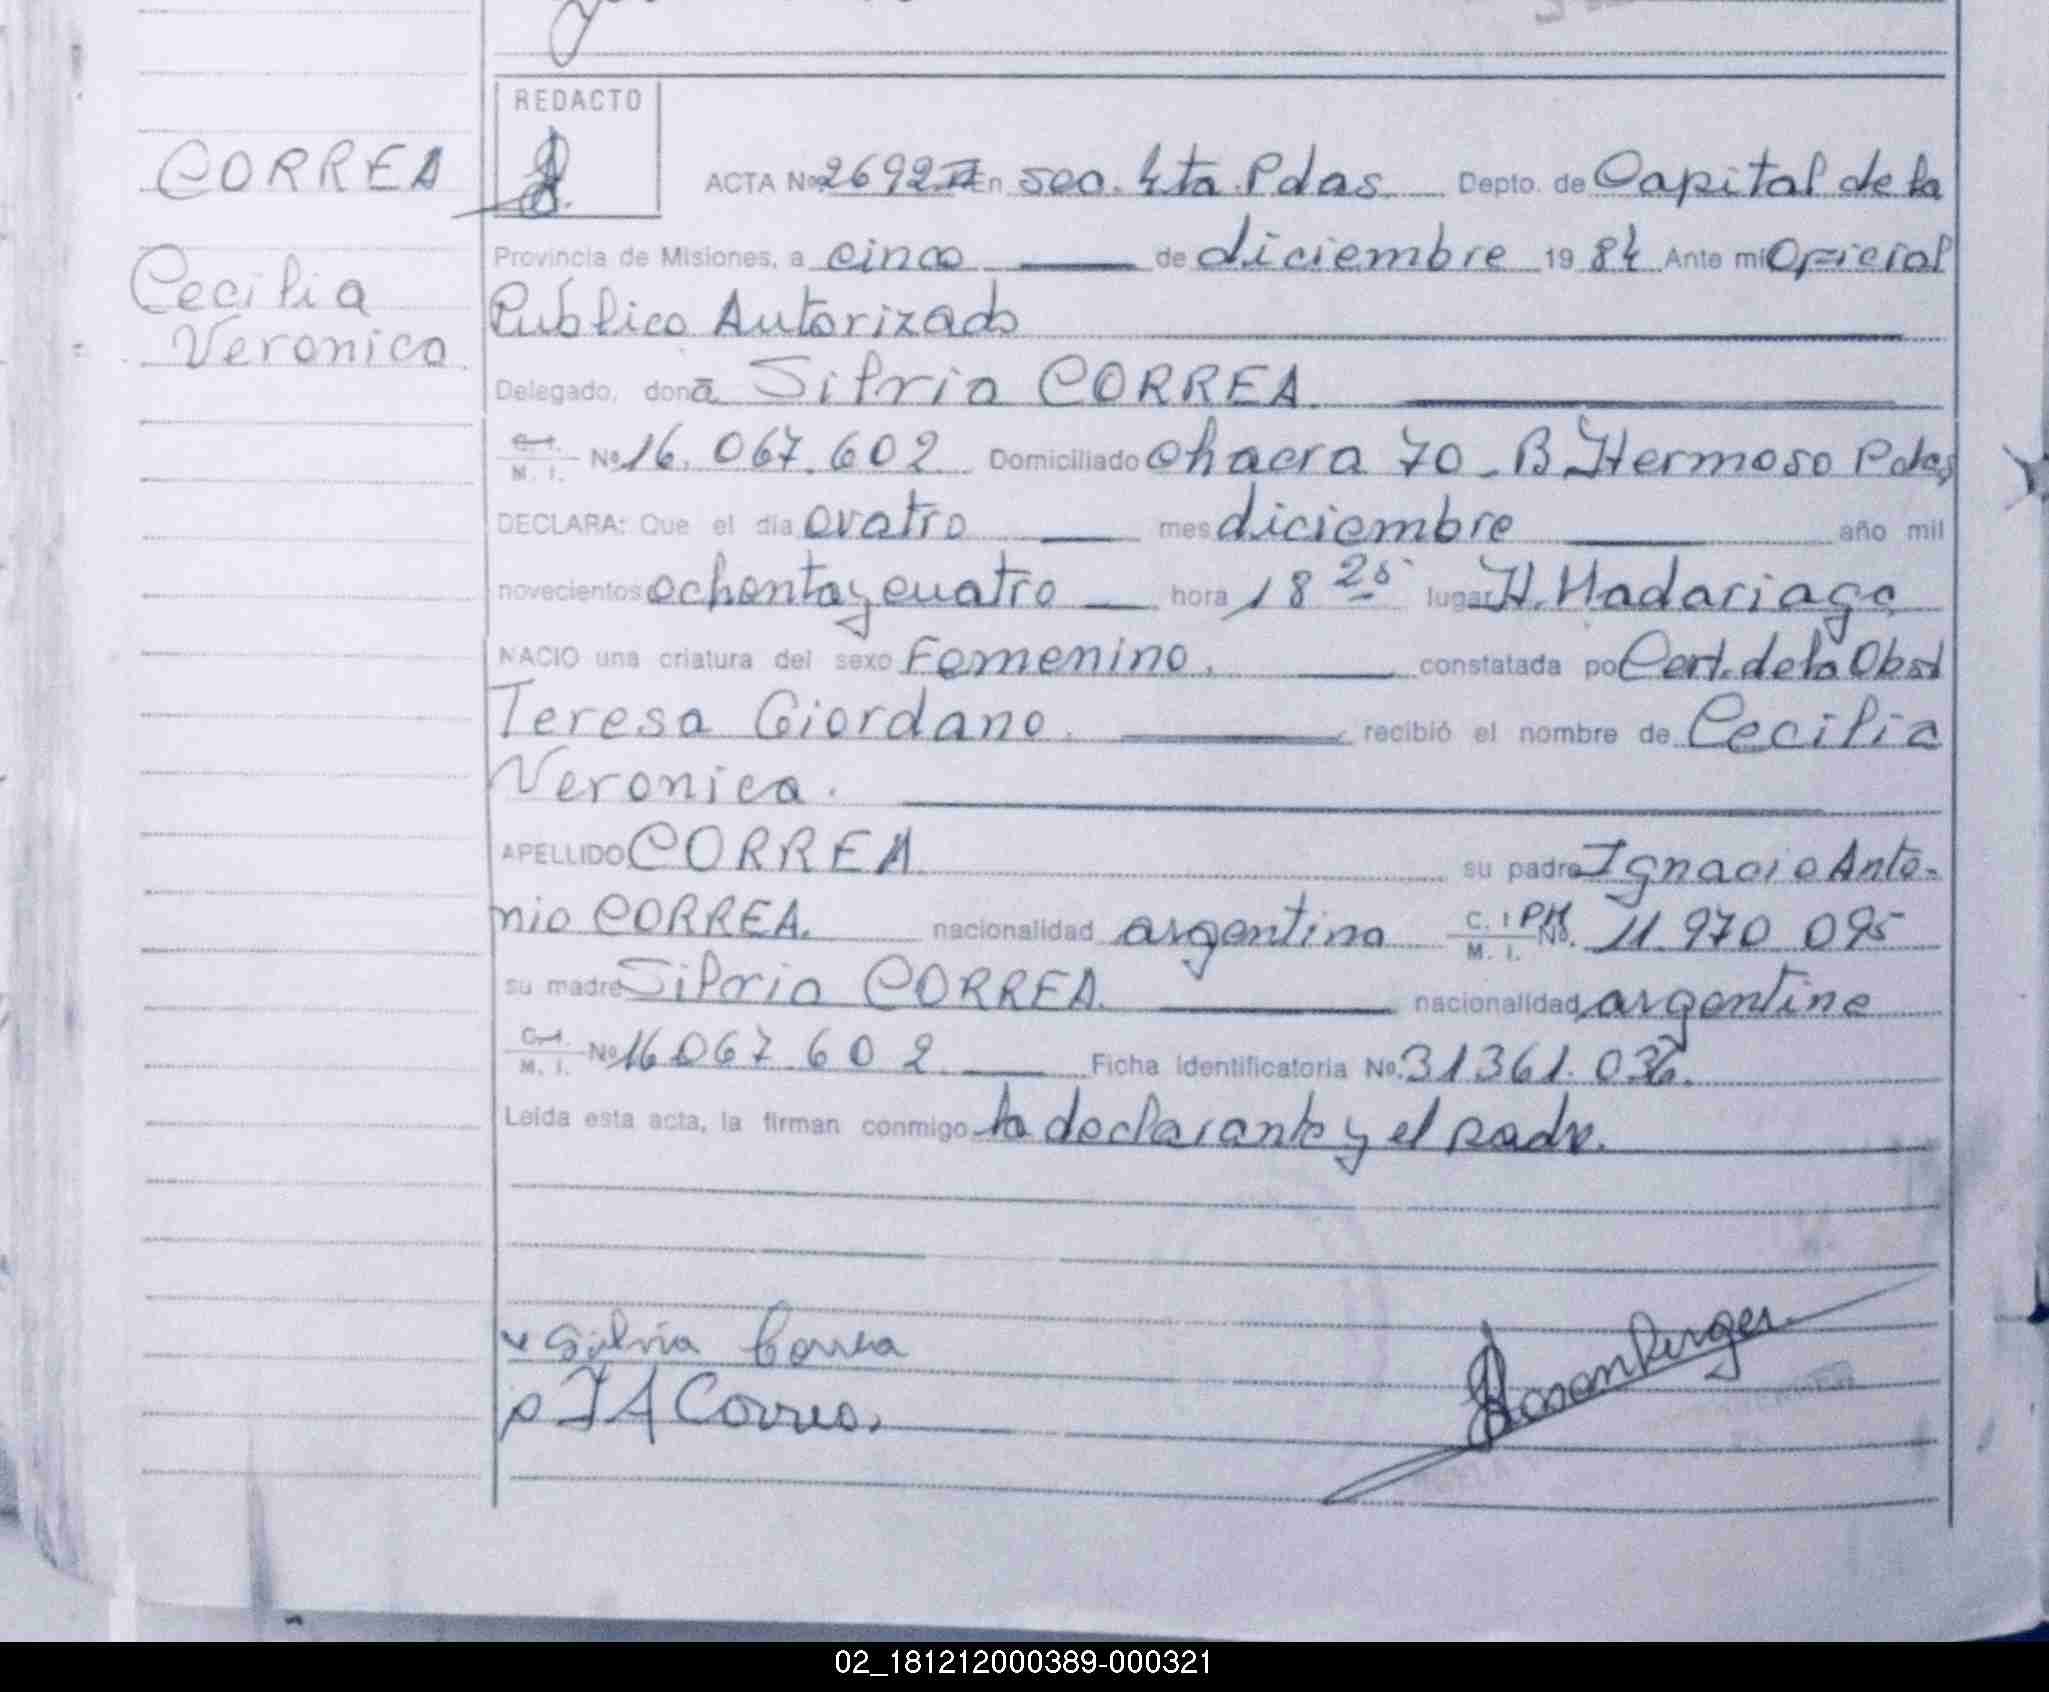 REDACTO
CORREA
ACTA No 2692 En sec. 4ta Pdas. Depto. de Capital de la
Provincia de Misiones, a cinco de diciembre 1984 Ante mi Oficial
Cecilia
Veronica
Público Autorizado
Delegado, doña Silvia CORREA.
C. I. M. I. No 16.067.602 Domiciliado chacra 70 - B Hermoso Pdas
DECLARA: Que el día cuatro mes diciembre año mil
novecientos ochenta y cuatro hora 18 25 lugar H. Madariaga
NACIO una criatura del sexo Femenino. constatada po Cert. de la Obst
Teresa Giordano. recibió el nombre de Cecilia
Veronica.
APELLIDO CORREA. su padre Ignacio Anto-
nio CORREA. nacionalidad argentino C. I. M. I. No. 11.970 095
su madre Silvia CORREA. nacionalidad argentina
C. I. M. I. No 16.067.602. Ficha identificatoria No. 31361.036.
Leída esta acta, la firman conmigo la declarante y el padre.
Silvia Correa
p I A Correa.
Rosenberger
02_181212000389-000321